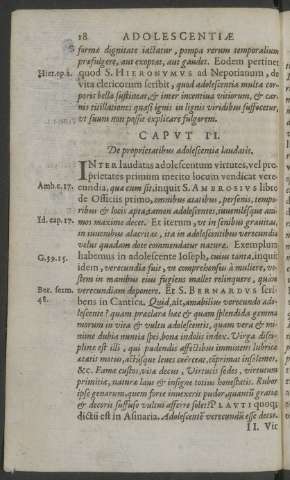 18 ADOLESCENTIÆ
formæ dignitate iactatur, pompa rerum temporalium
præfulgere, aut exoptat, aut gaudet. Eodem pertinet
Hier. ep. 2. quod S. HIERONYMVS ad Nepotianum, de
vita clericorum scribit, quod adolescentia multa cor-
poris bella sustineat, & inter incentiua vitiorum, & car-
nis titillationes quasi ignis in lignis viridibus suffocetur,
vt suum non possit explicare fulgorem.
CAPVT II.
De proprietatibus adolescentia laudatis.
INTER laudatas adolescentum virtutes, vel pro-
prietates primum merito locum vendicat vere-
Amb. c. 17. cundia, qua cum sit, inquit S. AMBROSIVS libro
de Officiis primo, omnibus ætatibus, personis, tempo-
ribus & locis apta, tamen adolescentes, iuuenilesque ani-
Id. cap. 17. mos maxime decet. Et iterum, vt in senibus grauitas,
in iuuenibus alacritas, ita in adolescentibus verecundia
velut quadam dote commendatur naturæ. Exemplum
G. 39. 15. habemus in adolescente Ioseph, cuius tanta, inquit
idem, verecundia fuit, vt comprehensus à muliere, ve-
stem in manibus eius fugiens mallet relinquere, quàm
Ber. serm. verecundiam deponere. Et S. BERNARDVS scri-
48. bens in Cantica, Quid, ait, amabilius verecundo ado-
lescente? quam præclara hæc & quam splendida gemma
morum in vita & vultu adolescentis, quam vera & mi-
nime dubia nuntia spei, bonæ indolis index. Virga disci-
plinæ est illi, quæ pudendis affectibus imminens lubricæ
ætatis motus, actusque leues coerceat, comprimat insolentes,
&c. Famæ custos, vitæ decus, Virtutis sedes, virtutum
primitiæ, naturæ laus & insigne totius honestatis. Rubor
ipse genarum, quem forte inuexerit pudor, quantū gratiæ
& decoris suffuso vultui afferre solet? PLAVTI quoque
dictū est in Asinaria. Adolescentē verecundū esse decet.
II. Vir